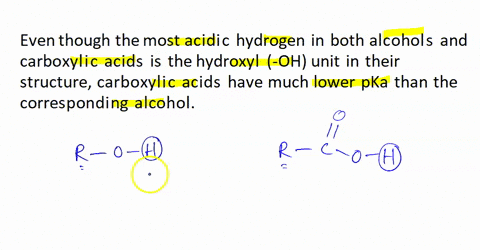 Even though the most acidic hydrogen in both alcohols and
carboxylic acids is the hydroxyl (-OH) unit in their
structure, carboxylic acids have much lower pKa than the
corresponding alcohol.
O
R - O - H
R - C
O - H